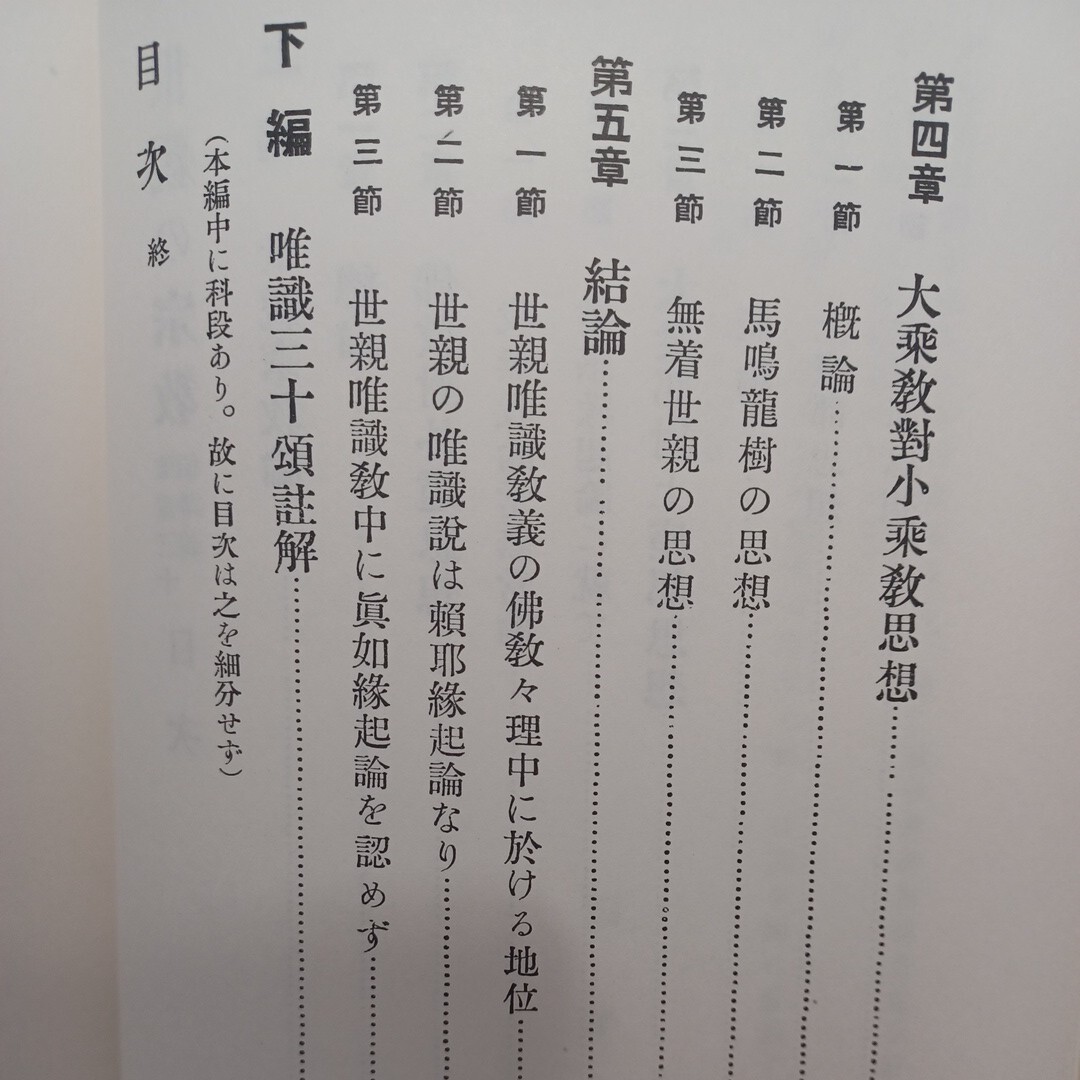 第四章 大乘敎對小乘敎思想
第一節 槪論
第二節 馬鳴龍樹の思想
第三節 無着世親の思想
第五章 結論
第一節 世親唯識敎義の佛敎々理中に於ける地位
第二節 世親の唯識說は賴耶緣起論なり
第三節 世親唯識敎中に眞如緣起論を認めず
下編 唯識三十頌註解
(本編中に科段あり。故に目次は之を細分せず)
目次終